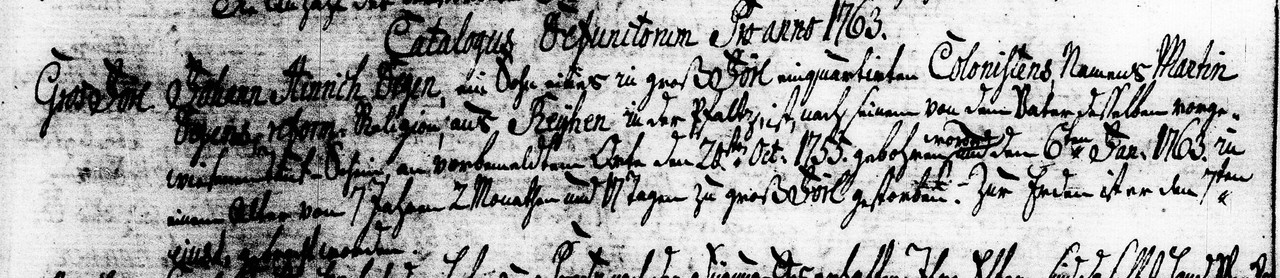 Catalogus Defunctorum Pro anno 1763.
Gros Jörl. Johann Hinrich Degen, ein Sohn eines in groß Jörl einquartirten Colonistens Namens Martin
Degens, reform. Religion, aus Reyhen in der Pfaltz, ist, nach seinem von dem Vater desselben vorge-
wiesenen Tauf-Schein, an vorbemeldtem Orte den 20ten Oct. 1755. gebohren worden und den 6ten Jan. 1763. in
einem Alter von 7 Jahren 2 Monathen und 17 Tagen zu groß Jörl gestorben. Zur Erden ist er den 7ten
ejusd. gebracht worden.